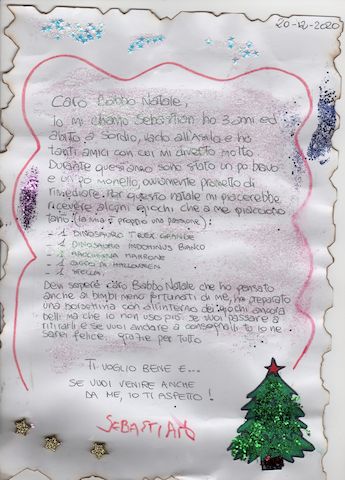 20-12-2020
Caro Babbo Natale,
Io mi chiamo Sebastian ho 3 anni ed
abito a Sordio, vado all'Asilo e ho
tanti amici con cui mi diverto molto
Durante quest'anno sono stato un po' bravo
e un po monello, ovviamente prometto di
rimediare. Per questo natale mi piacerebbe
ricevere alcuni giochi che a me piacciono
tanto (la mia è proprio una passione):
- 1 DINOSAURO T REX GRANDE
- 1 DINOSAURO INDOMINUS BIANCO
- 1 MACCHINA MARRONE
- 1 DI HALLOWEEN
- 1 STELLA.
Devi sapere caro Babbo Natale che ho pensato
anche ai bimbi meno fortunati di me, ho preparato
una borsettina con all'interno dei giochi ancora
belli ma che io non uso più. se vuoi passare a
ritirarli e se vuoi andare a consegnarli tu io ne
sarei felice. grazie per tutto
TI VOGLIO BENE E...
SE VUOI VENIRE ANCHE
DA ME, IO TI ASPETTO!
SEBASTIAN